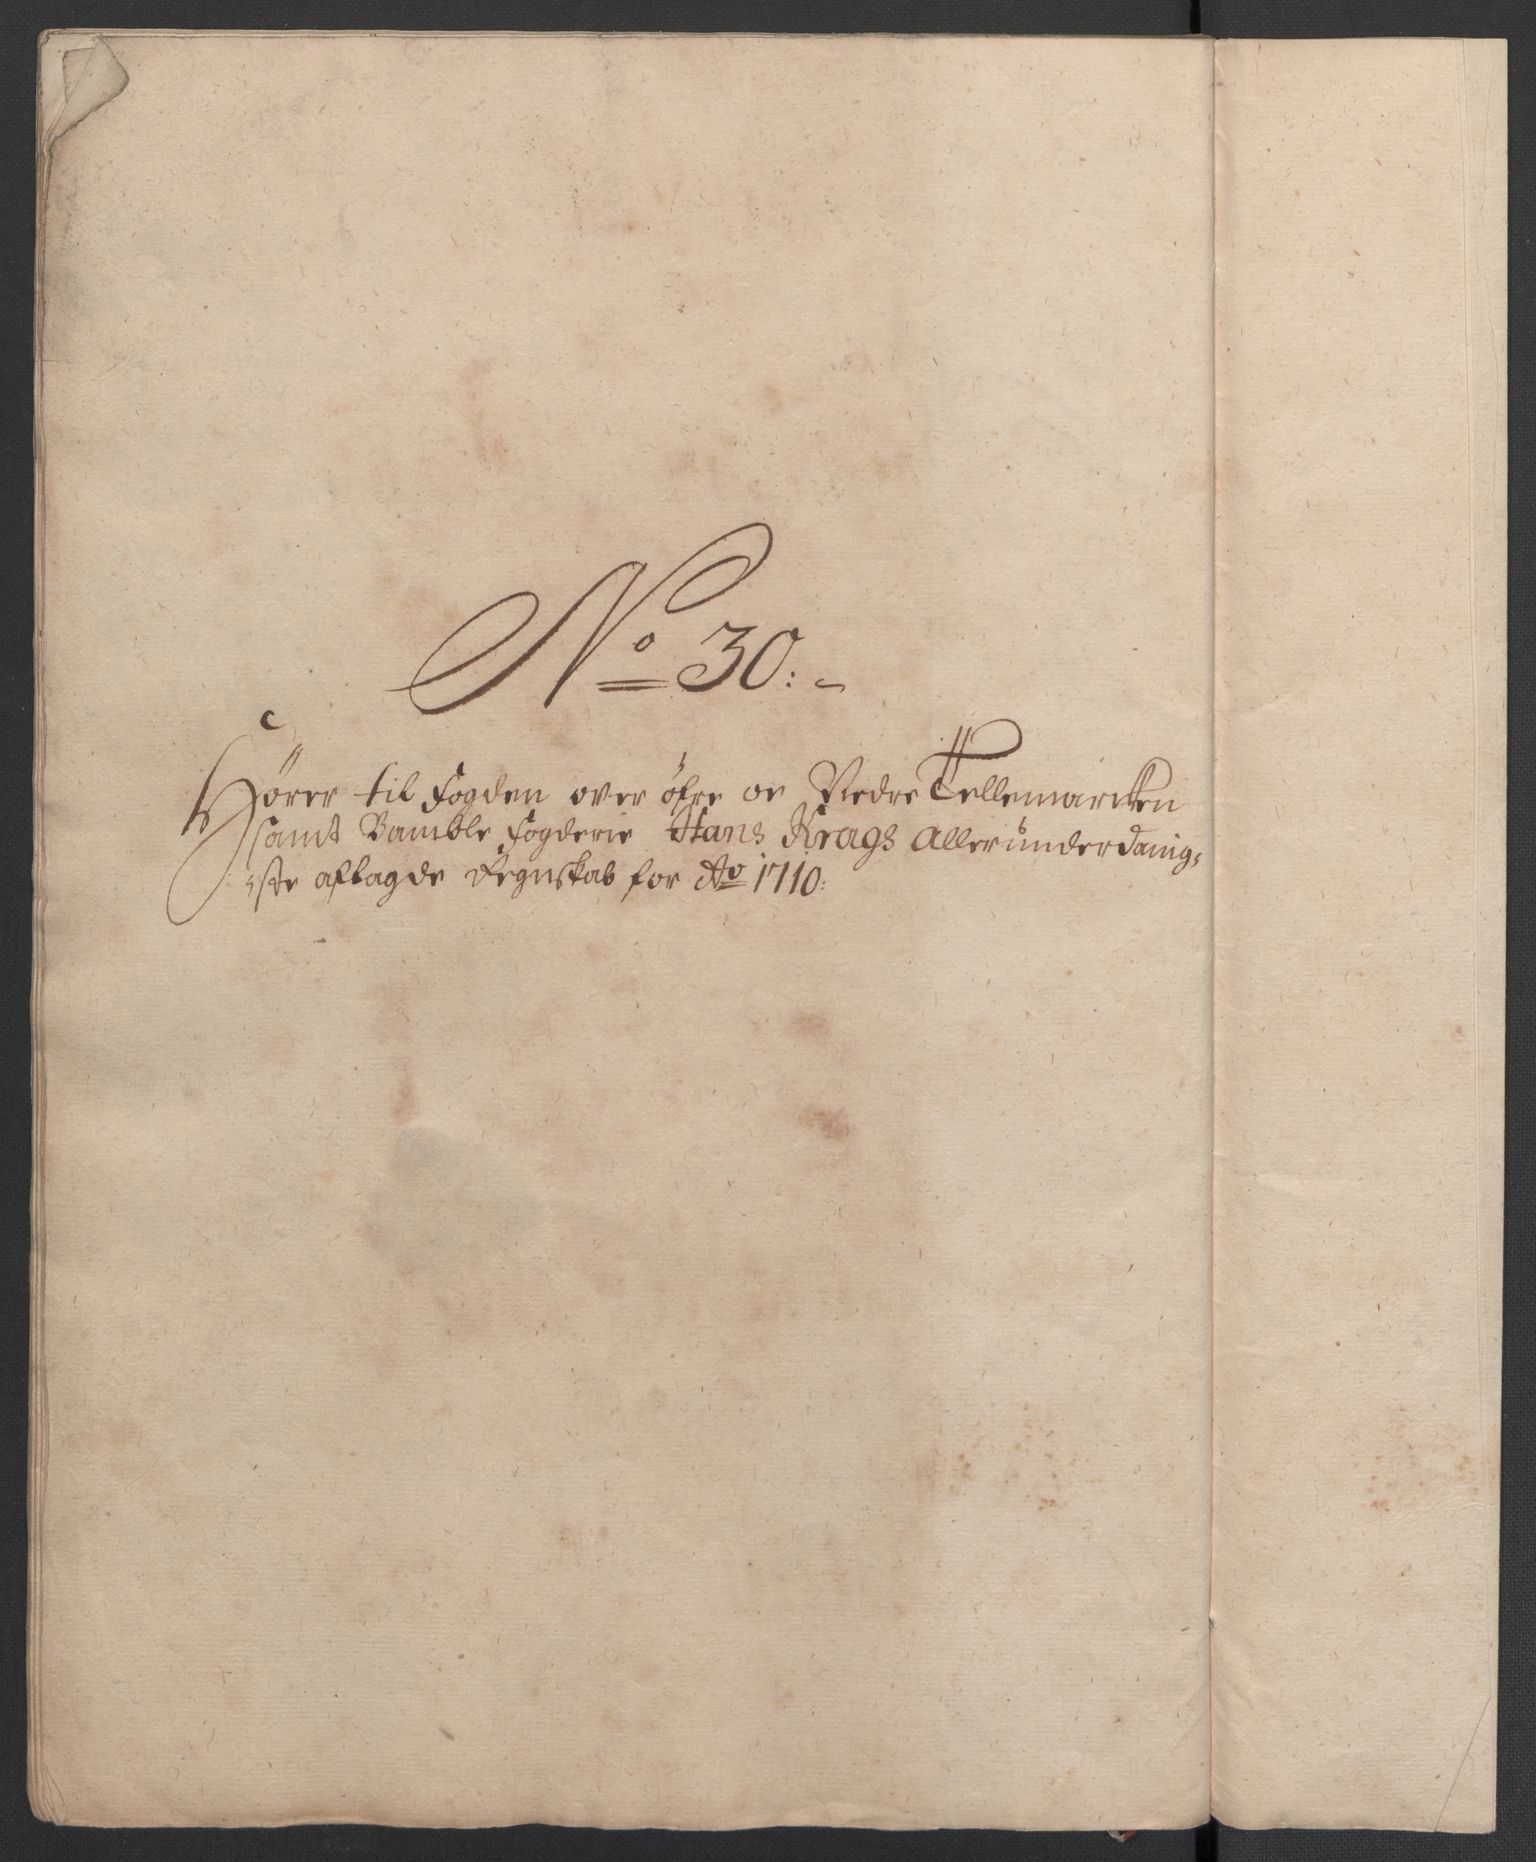 No 30:
Hører til Fogden over øfre oc Nedre Tellemarcken
samt Bamble Fogderie Hans Krags Allerunderdanig=
=ste aflagde Regnskab for Ao 1710: